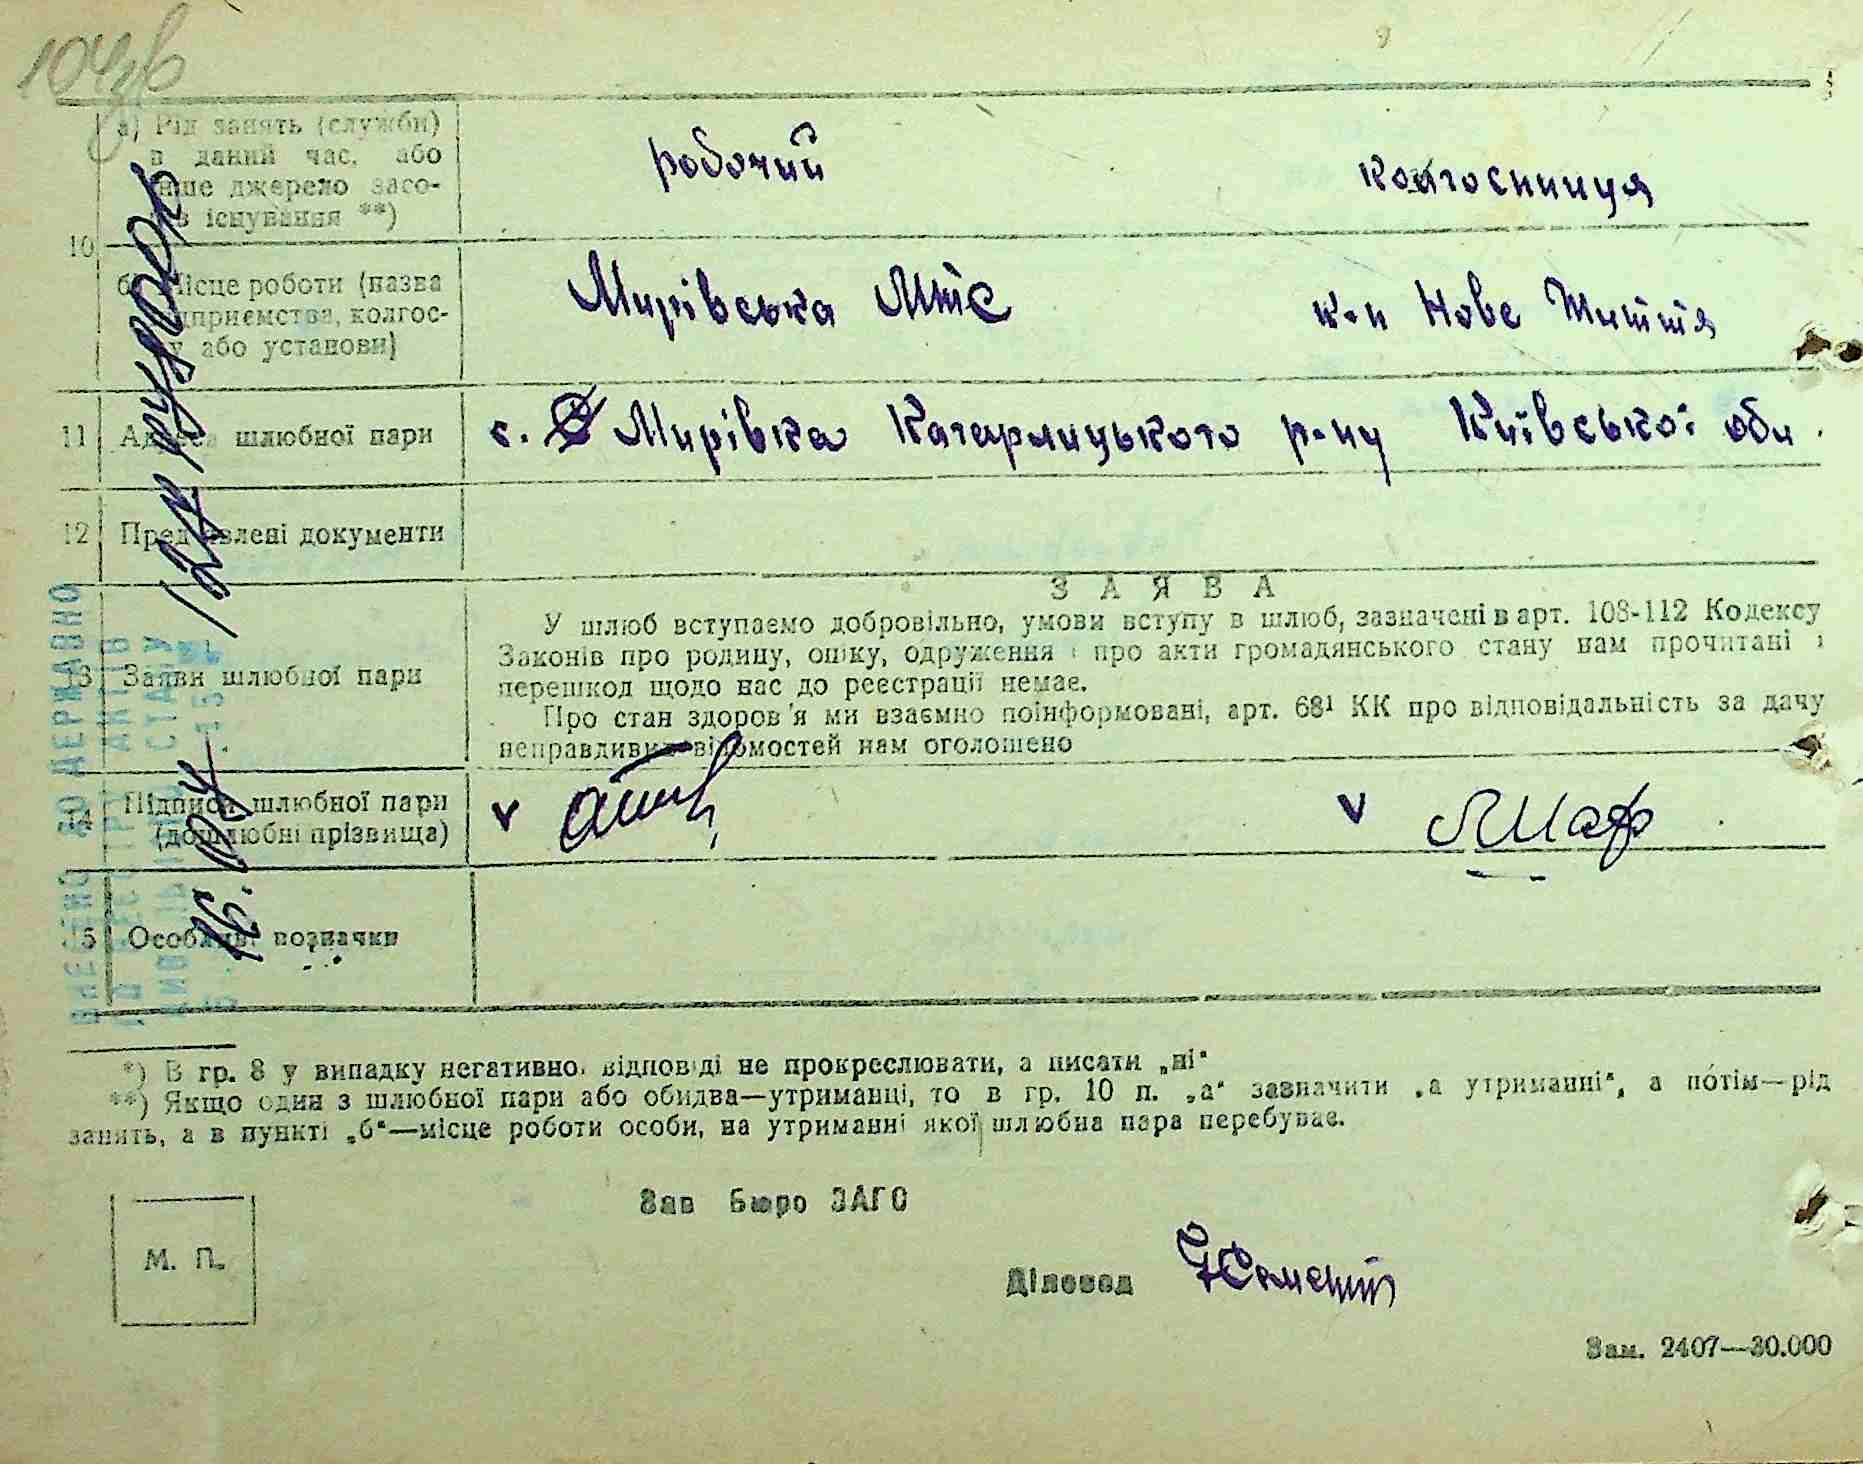 а) Рід занять (служби)
в даний час, або
інше джерело засо-
бів існування **)
робочий
колгоспниця
10
б) Місце роботи (назва
підприємства, колгос-
пу або установи)
Мирівська МТС
к-п Нове Життя
11
Адреса шлюбної пари
с. Мирівка Кагарлицького р-ну Київської обл.
12
Пред'явлені документи
13
Заяви шлюбної пари
ЗАЯВА
У шлюб вступаємо добровільно, умови вступу в шлюб, зазначені в арт. 108-112 Кодексу
Законів про родину, опіку, одруження і про акти громадянського стану нам прочитані і
перешкод щодо нас до реєстрації немає.
Про стан здоров'я ми взаємно поінформовані, арт. 68¹ КК про відповідальність за дачу
неправдивих відомостей нам оголошено
14
Підписи шлюбної пари
(дошлюбні прізвища)
15
Особливі позначки
ВНЕСЕНО ДО ДЕРЖАВНО
*) В гр. 8 у випадку негативно. відповіді не прокреслювати, а писати „ні“
**) Якщо один з шлюбної пари або обидва—утриманці, то в гр. 10 п. „а“ зазначити „а утриманні“, а потім—рід
занять, а в пункті „б“—місце роботи особи, на утриманні якої шлюбна пара перебуває.
Зав Бюро ЗАГС
М. П.
Діловод
Зам. 2407—30.000